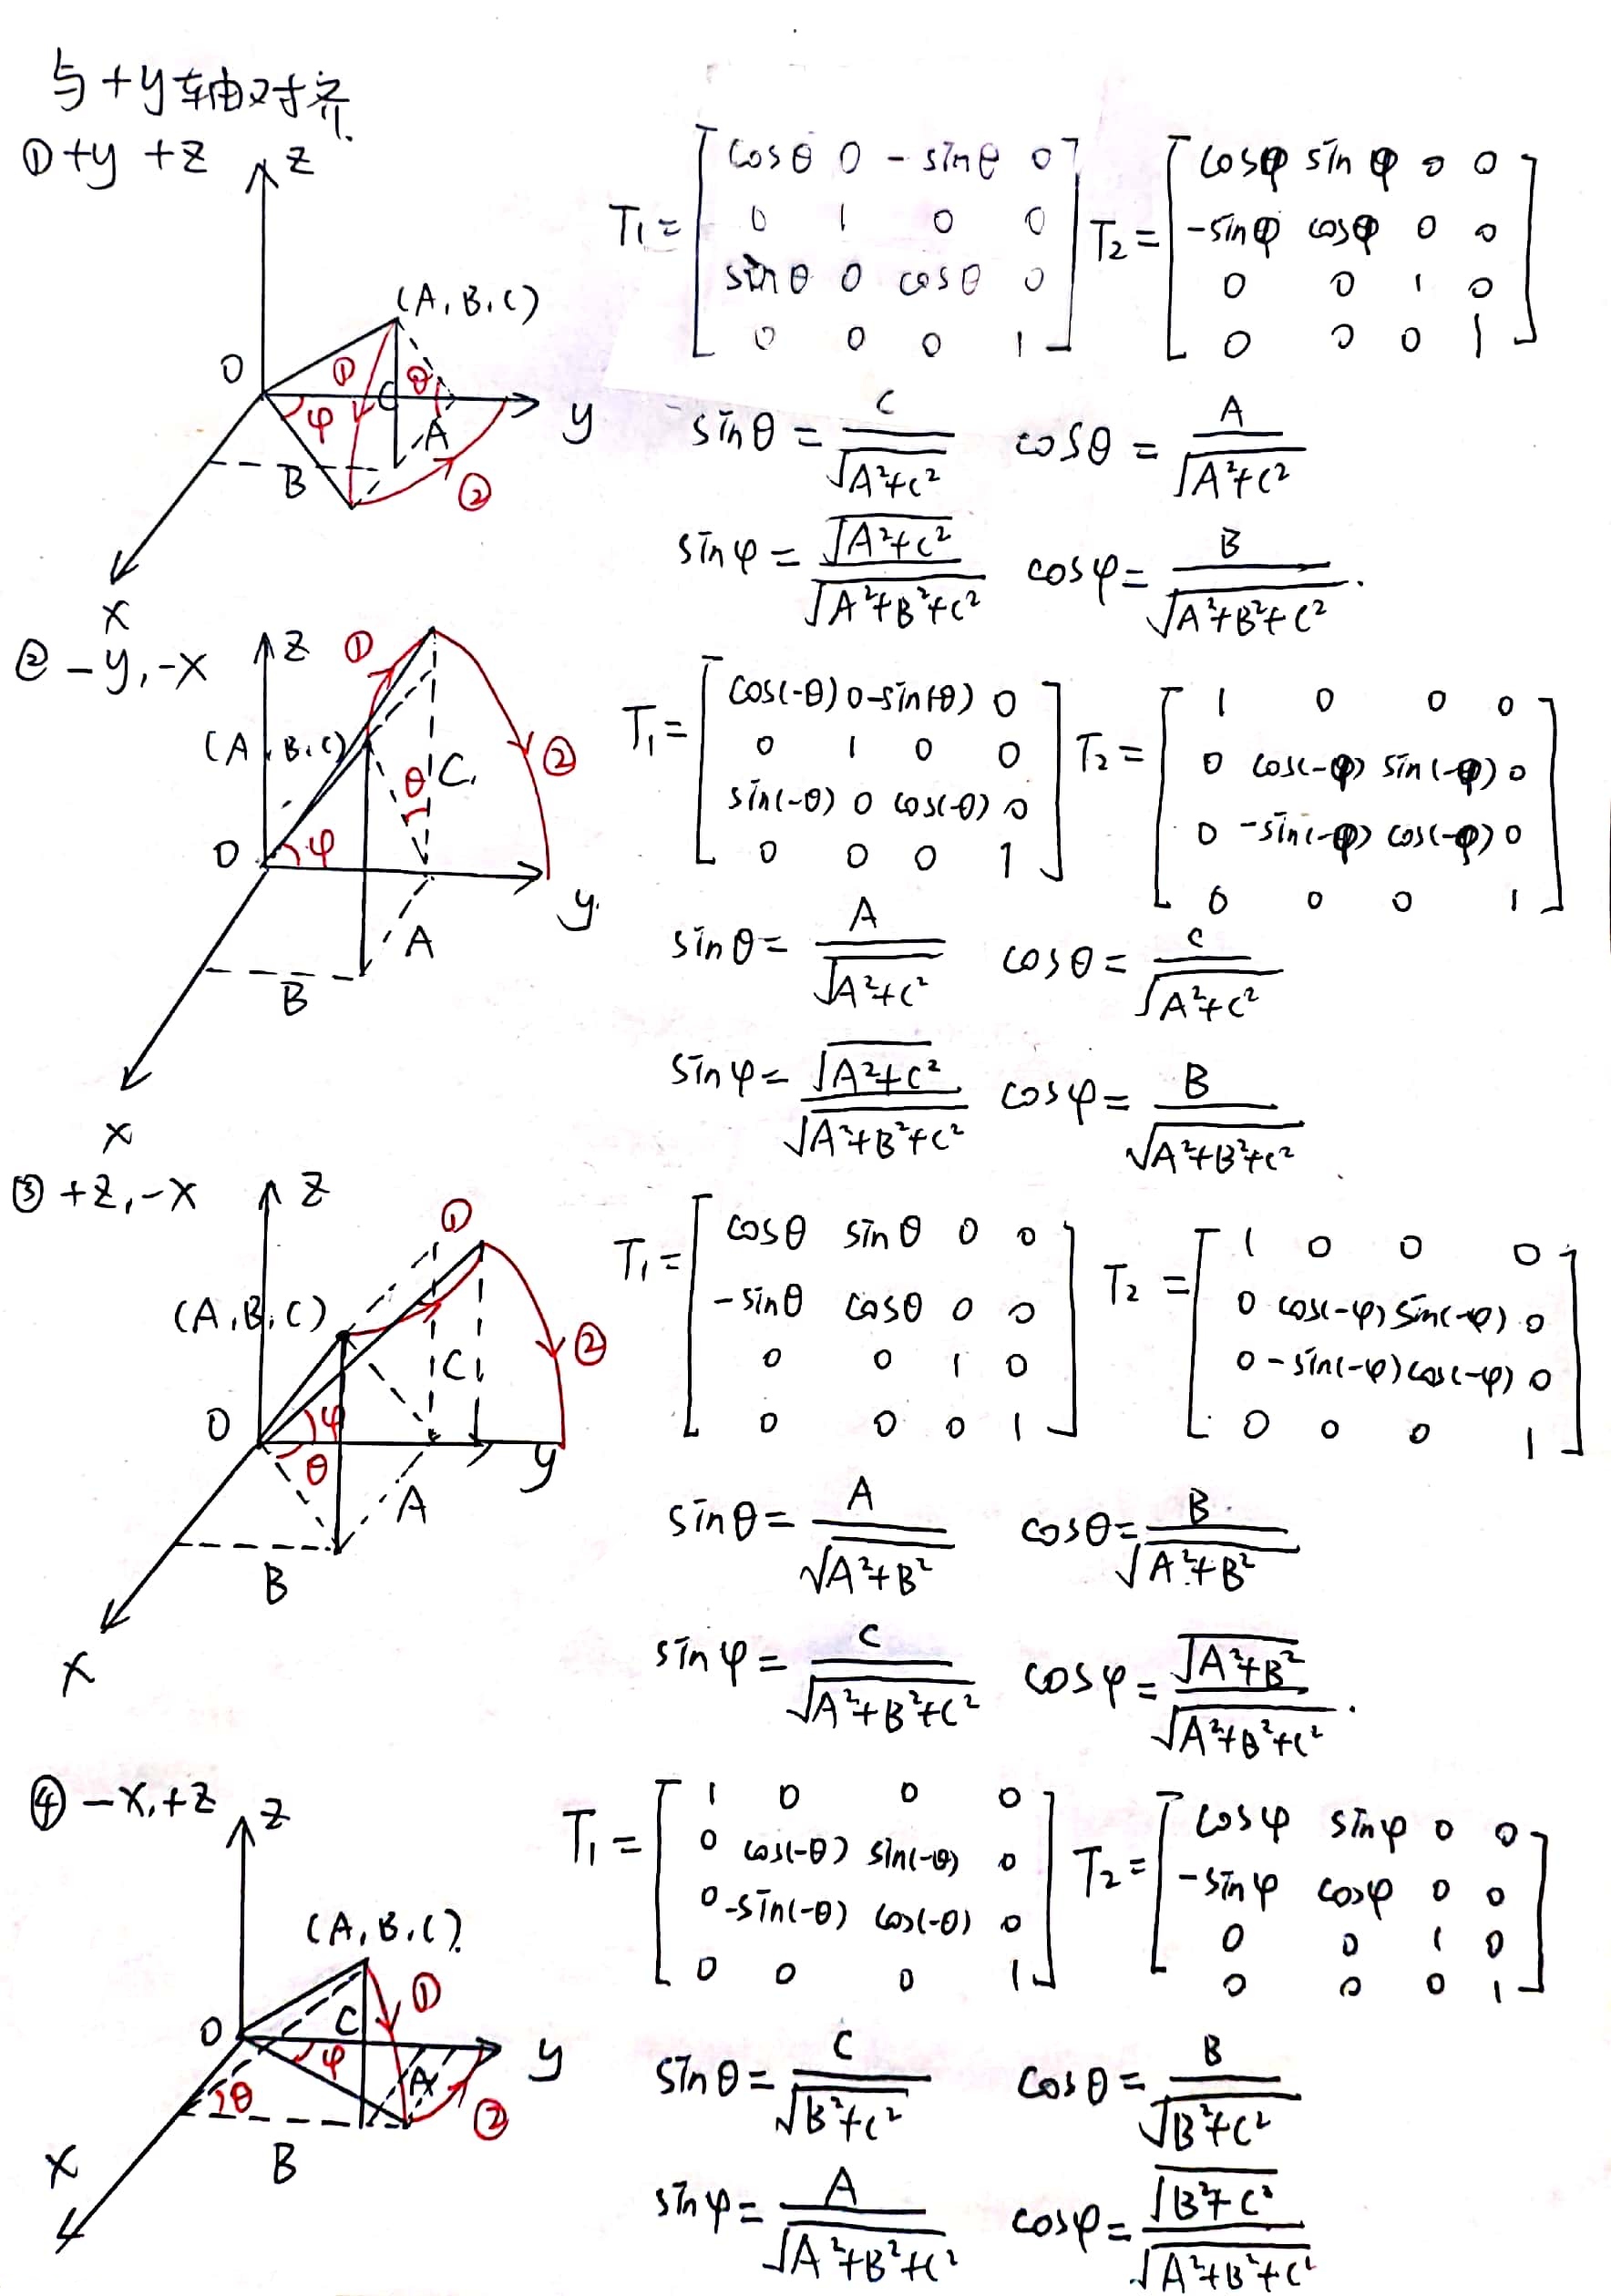 与+y轴对齐.
① +y +z
z
(A, B, C)
O ① C θ
φ A y
B ②
x
T₁ = [cosθ 0 -sinθ 0
0 1 0 0
sinθ 0 cosθ 0
0 0 0 1]
T₂ = [cosφ sinφ 0 0
-sinφ cosφ 0 0
0 0 1 0
0 0 0 1]
sinθ = C/√(A²+C²) cosθ = A/√(A²+C²)
sinφ = √(A²+C²)/√(A²+B²+C²) cosφ = B/√(A²+B²+C²).
② -y, -x
z ①
(A, B, C) ②
θ C
O φ y
A
B
x
T₁ = [cos(-θ) 0 -sin(-θ) 0
0 1 0 0
sin(-θ) 0 cos(-θ) 0
0 0 0 1]
T₂ = [1 0 0 0
0 cos(-φ) sin(-φ) 0
0 -sin(-φ) cos(-φ) 0
0 0 0 1]
sinθ = A/√(A²+C²) cosθ = C/√(A²+C²)
sinφ = √(A²+C²)/√(A²+B²+C²) cosφ = B/√(A²+B²+C²)
③ +z, -x
z ①
(A, B, C) ②
C
O φ
θ y
A
B
x
T₁ = [cosθ sinθ 0 0
-sinθ cosθ 0 0
0 0 1 0
0 0 0 1]
T₂ = [1 0 0 0
0 cos(-φ) sin(-φ) 0
0 -sin(-φ) cos(-φ) 0
0 0 0 1]
sinθ = A/√(A²+B²) cosθ = B/√(A²+B²)
sinφ = C/√(A²+B²+C²) cosφ = √(A²+B²)/√(A²+B²+C²).
④ -x, +z
z
(A, B, C)
①
O C y
φ A
θ ②
B
x
T₁ = [1 0 0 0
0 cos(-θ) sin(-θ) 0
0 -sin(-θ) cos(-θ) 0
0 0 0 1]
T₂ = [cosφ sinφ 0 0
-sinφ cosφ 0 0
0 0 1 0
0 0 0 1]
sinθ = C/√(B²+C²) cosθ = B/√(B²+C²)
sinφ = A/√(A²+B²+C²) cosφ = √(B²+C²)/√(A²+B²+C²)